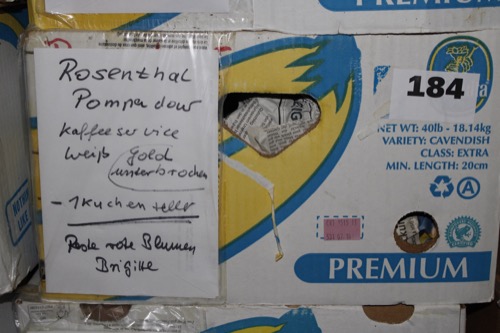 PREMIUM
Rosenthal
Pompadour
Kaffeeservice
weiß gold
unterbrochen
- 1 Kuchenteller
Rote Blumen
Brigitte
184
NET WT: 40lb - 18.14kg
VARIETY: CAVENDISH
CLASS: EXTRA
MIN. LENGTH: 20cm
PREMIUM